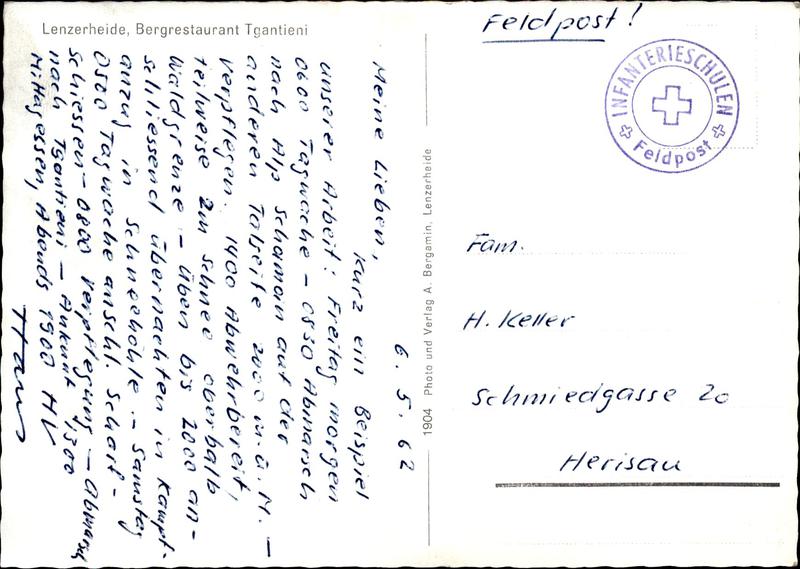 Lenzerheide, Bergrestaurant Tgantieni
6.5.62
Meine Lieben,
Kurz ein Beispiel
unserer Arbeit: Freitag morgen
0600 Tagwache – 0830 Abmarsch
nach Alp Scharmoin auf der
anderen Talseite 2000 m.ü.M. –
Verpflegen. 1400 Abwehrbereit,
teilweise im Schnee oberhalb
Waldgrenze – Üben bis 2000 an-
schliessend übernachten in Kampf-
anzug in Schneehöhle. – Samstag
0500 Tagwache anschl. Scharf-
schiessen – 0800 Verpflegung – Abmarsch
nach Tgantieni – Ankunft 1300
Mittagessen, Abends 1900 HV
Hans
1904 Photo und Verlag A. Bergamin, Lenzerheide
Feldpost!
INFANTERIESCHULEN
Feldpost
Fam.
H. Keller
Schmiedgasse 20
Herisau